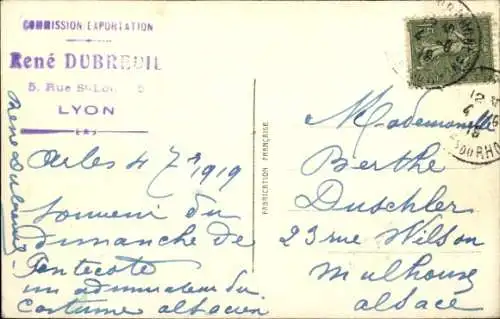 COMMISSION-EXPORTATION
René DUBREUIL
5, Rue St-Lou 5
LYON
René Dubreuil
Arles 4 7bre 1919
Souvenir du
dimanche de
Pentecote
un admirateur du
Costume alsacien
FABRICATION FRANÇAISE
12
4
DU RHO
Mademoiselle
Berthe
Duschler
23 rue Wilson
Mulhouse
alsace